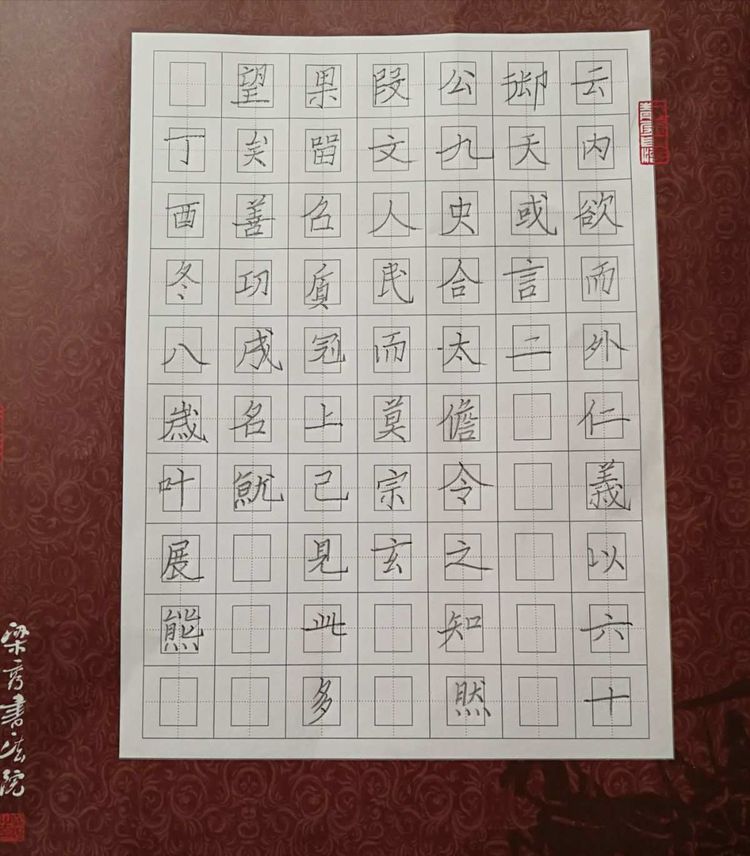 云内欲而外仁義以六十
御天或言二
公九史合太儋令之知然
段文人民而莫宗玄
果留名質冠上己見此多
望矣善功成名魷
丁酉冬八歲叶展熊
梁秀書法院